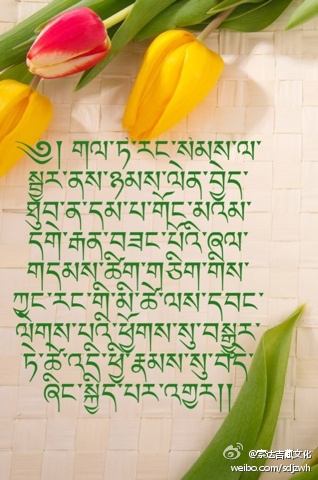 ༄། གལ་ཏེ་རང་སེམས་ལ་
སྦྱར་ནས་ཉམས་ལེན་བྱེད་
ཐུབ་ན་དམ་པ་གོང་མའམ་
དགེ་རྒན་བཟང་པོའི་ཞལ་
གདམས་ཚིག་གཅིག་གིས་
ཀྱང་རང་གི་མི་ཚེ་ལས་དབང་
ལེགས་པའི་ཕྱོགས་སུ་བསྒྱུར་
ཏེ་ཚེ་འདི་ཕྱི་རྣམས་སུ་བདེ་
ཞིང་སྐྱིད་པར་འགྱུར།།
@索达吉凯文化
weibo.com/sdjzwh